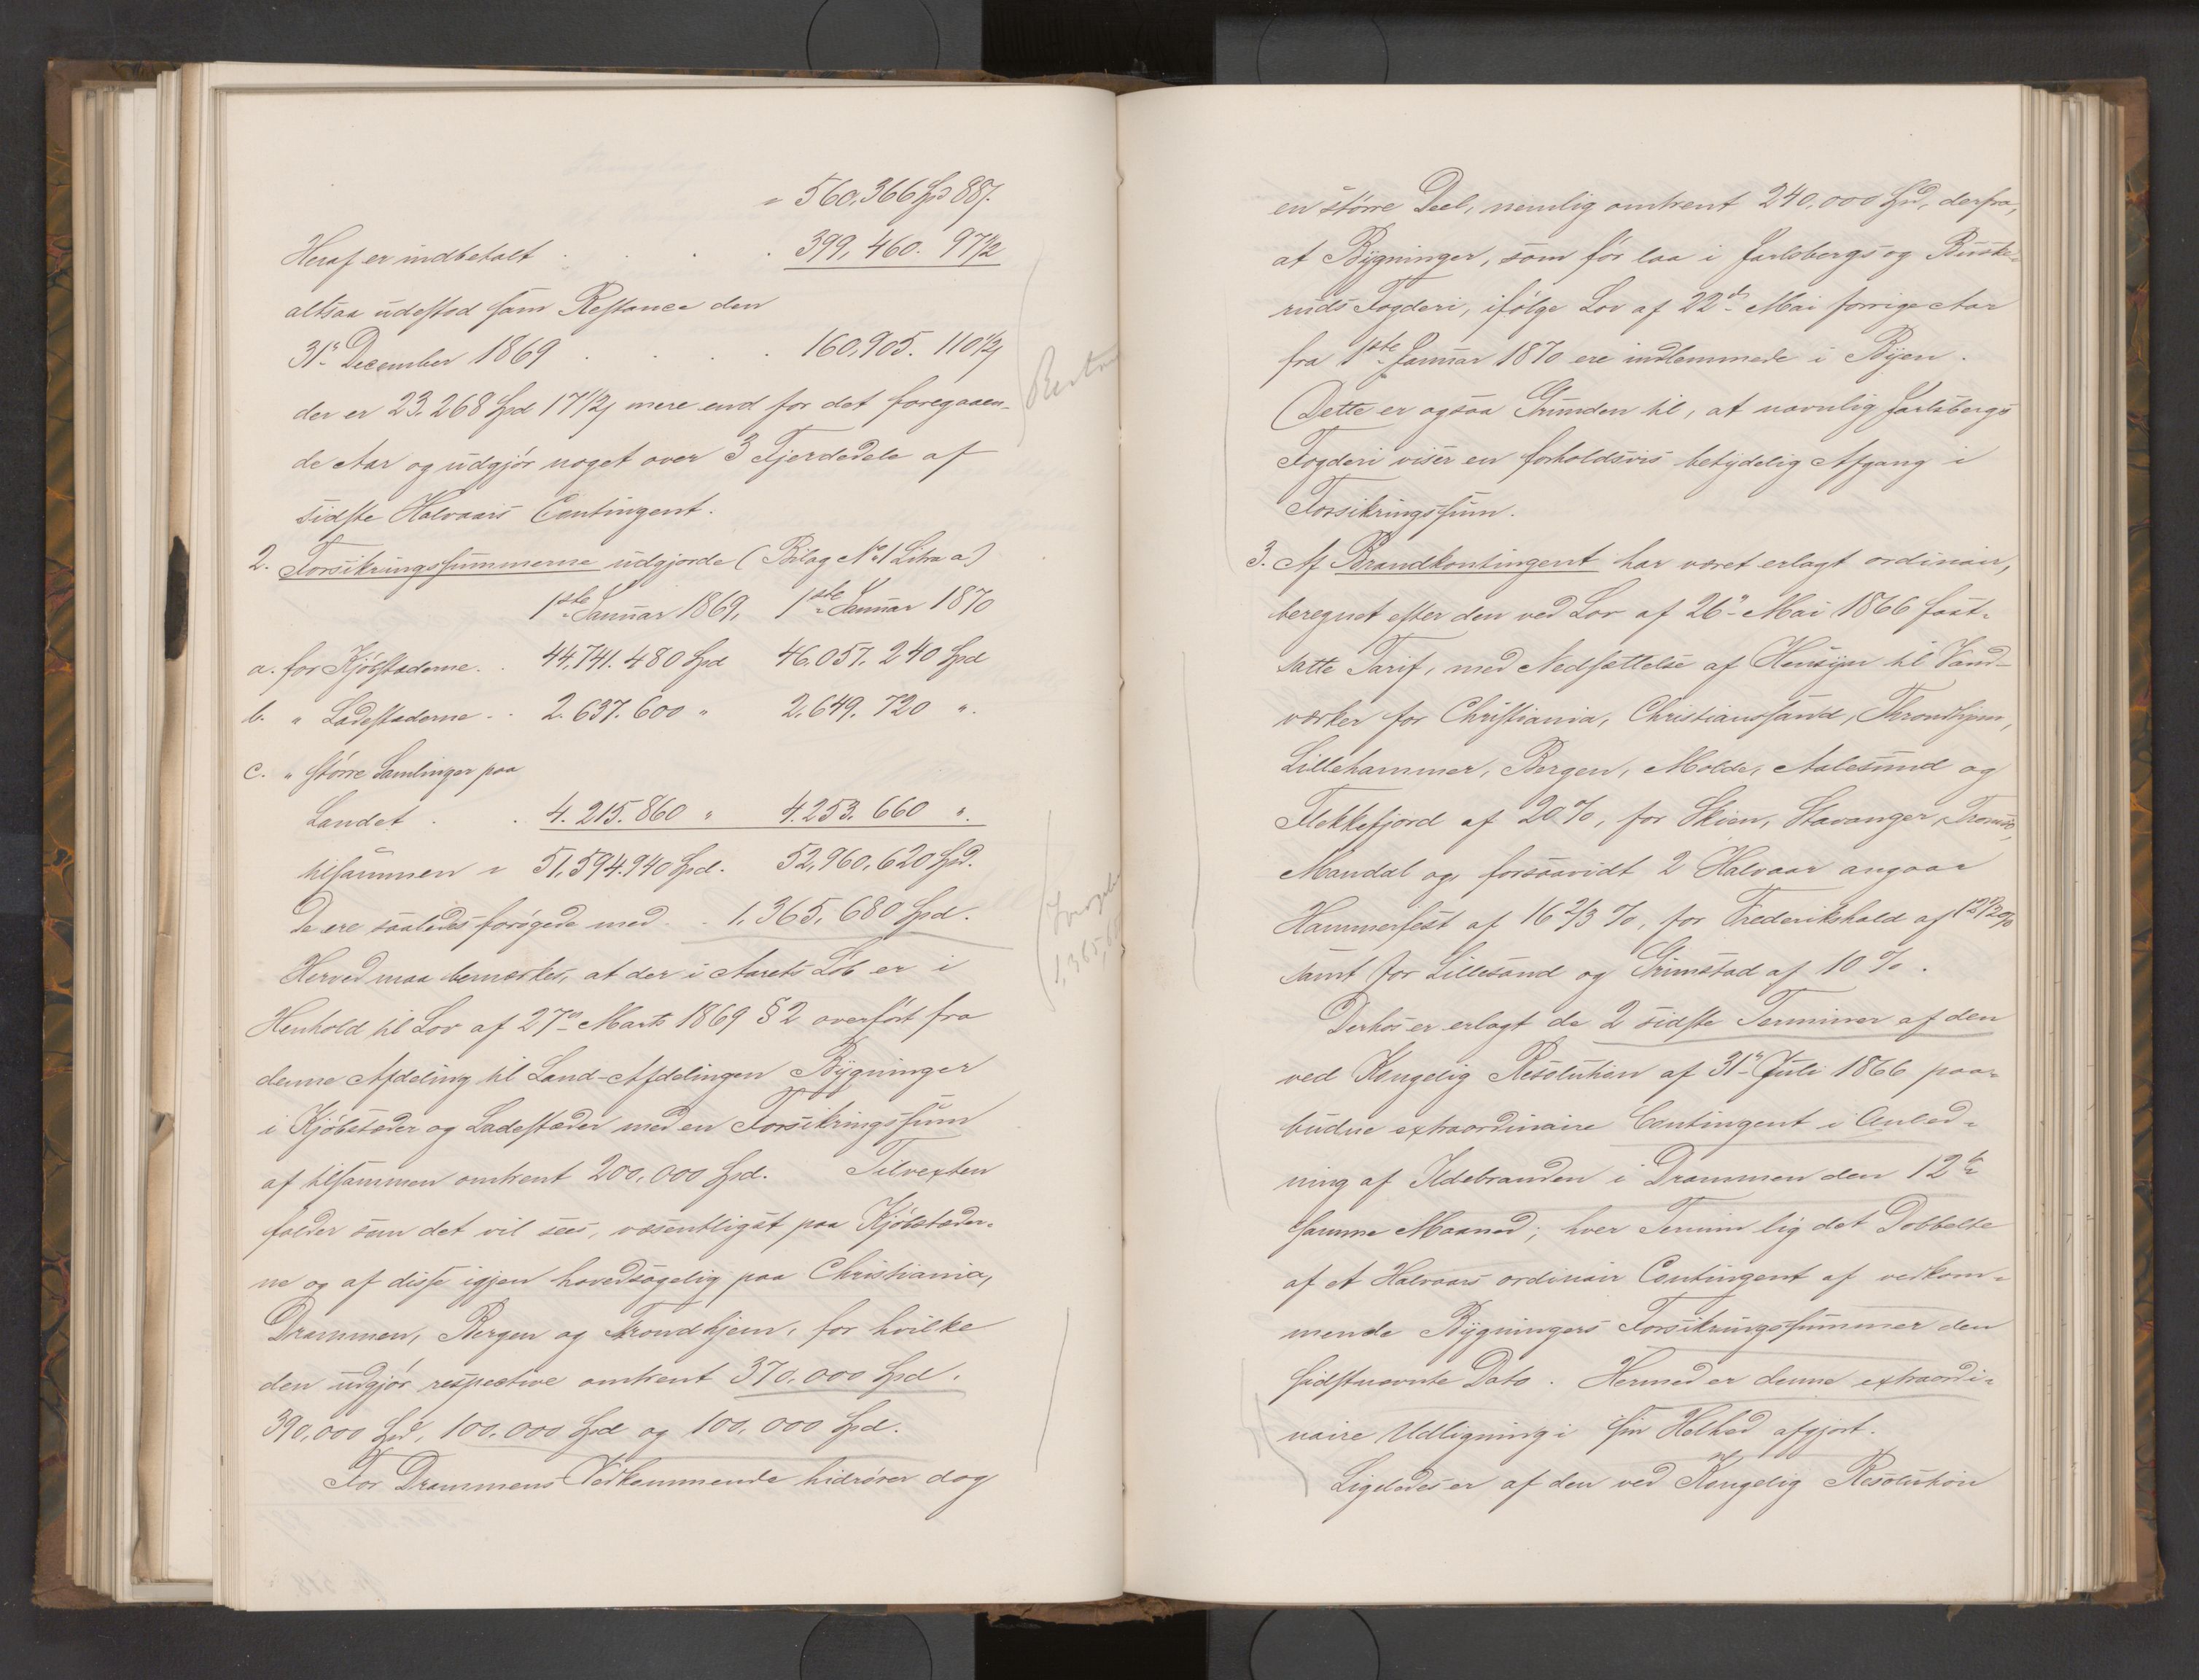 = 560,366 Spd 88 ß.
Heraf er indbetalt . . . 399,460. 97 1/2
altsaa udestod som Restance den
31te December 1869 . . . . 160,905. 110 1/2 ß
der er 23,268 Spd 17 1/2 ß mere end for det foregaaen-
de Aar og udgjør noget over 3 Fjerdedele af
sidste Halvaars Contingent.
2. Forsikringssummerne udgjorde (Bilag No 1 Litra a)
1ste Januar 1869, 1ste Januar 1870
a. for Kjøbstæderne . . 44.741.480 Spd 46.057.240 Spd
b. " Ladestæderne . . 2.637.600 " 2.649.720 ".
c. " større Samlinger paa
Landet . . 4.215.860 " 4.253.660 ".
tilsammen = 51,594.940 Spd. 52,960,620 Spd.
De ere saaledes forøgede med . . 1,365,680 Spd.
Herved maa bemærkes, at der i Aarets Løb er i
Henhold til Lov af 27de Marts 1869 § 2 overført fra
denne Afdeling til Land-Afdelingen Bygninger
i Kjøbstæder og Ladestæder med en Forsikringssum
af tilsammen omtrent 200,000 Spd. Tilvexten
falder som det vil sees, væsentligst paa Kjøbstæder-
ne og af disse igjen hovedsagelig paa Christiania,
Drammen, Bergen og Trondhjem, for hvilke
den udgjør respective omtrent 370,000 Spd,
390,000 Spd, 100,000 Spd og 100,000 Spd.
For Drammens Vedkommende hidrører dog
1,365,6
en større Deel, nemlig omtrent 240,000 Spd, derfra,
at Bygninger, som før laa i Jarlsbergs og Buske-
ruds Fogderi, ifølge Lov af 22de Mai forrige Aar
fra 1ste Januar 1870 ere indlemmede i Byen.
Dette er ogsaa Grunden til, at navnlig Jarlsbergs
Fogderi viser en forholdsvis betydelig Afgang i
Forsikringssum.
3. Af Brandkontingent har været erlagt ordinair,
beregnet efter den ved Lov af 26de Mai 1866 fast-
satte Tarif, med Nedsættelse af Hensyn til Vand-
værker for Christiania, Christianssand, Throndhjem,
Lillehammer, Bergen, Molde, Aalesund og
Flekkefjord af 20 %, for Skien, Stavanger, Tromsø,
Mandal og, forsaavidt 2 Halvaar angaar
Hammerfest af 16 2/3 %, for Frederikshald af 12 1/2 %
samt for Lillesand og Grimstad af 10 %.
Derhos er erlagt de 2 sidste Terminer af den
ved Kongelig Resolution af 31te Juli 1866 paa-
budne extraordinaire Contingent i Anled-
ning af Ildebranden i Drammen den 12te
samme Maaned; hver Termin lig det Dobbelte
af et Halvaars ordinair Contingent af vedkom-
mende Bygningers Forsikringssummer den
sidstnævnte Dato. Hermed er denne extraordi-
naire Udligning i sin Helhed afgjort.
Ligeledes er af den ved Kongelig Resolution